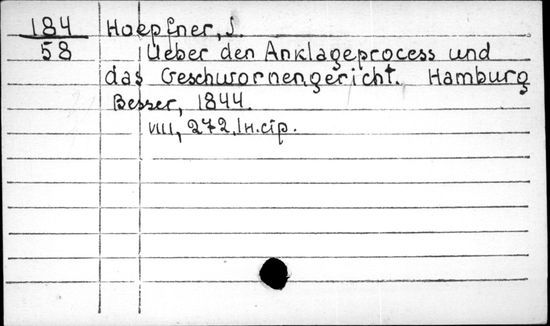 184 Hoepfner, J.
58 Ueber den Anklageprocess und
das Geschwornengericht. Hamburg
Besser, 1844.
VIII, 272, 1 н.cтр.